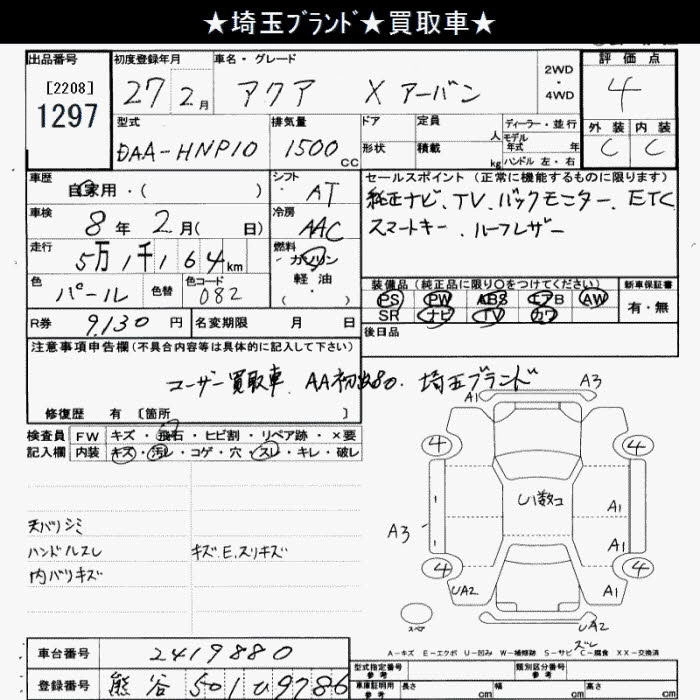 ★埼玉ﾌﾞﾗﾝﾄﾞ★買取車★
出品番号 初度登録年月 車名・グレード 2WD・4WD 評価点
[2208]
1297
27年2月 アクア X アーバン 4
型式 排気量 ドア 定員 人 ディーラー・並行 外装 内装
DAA-HNP10 1500cc 形状 積載 kg モデル年式 年 ハンドル 左・右 C C
車歴 シフト セールスポイント(正常に機能するものに限ります)
自家用・( ) AT 純正ナビ、TV、バックモニター、ETC
車検 冷房 スマートキー、ルーフレザー
8年2月( 日) AAC
走行 燃料
5万1千164km ガソリン・軽油・
色 色替 色コード 装備品(純正品に限り○をつけてください) 新車保証書
パール 082 PS PW ABS エアB AW 有・無
SR ナビ TV カワ
R券 9,130円 名変期限 月 日 後日品
注意事項申告欄(不具合内容等は具体的に記入して下さい)
ユーザー買取車、AA初出品、埼玉ブランド
修復歴 有 [箇所 ]
検査員記入欄 FW キズ・飛石・ヒビ割・リペア跡・×要
内装 キズ・汚レ・コゲ・穴・スレ・キレ・破レ
A1 A3
4 4
A3 A1
A1
4 4
UA2 A1
UA2
天バリシミ
ハンドルスレ キズE、スリキズ
内バリキズ
スペア
A-キズ E-エクボ U-凹み W-補修跡 S-サビ C-腐食 XX-交換済
車台番号 2419880
登録番号 熊谷 501 ひ 9786
型式指定番号 参考 類別区分番号 参考
車庫証明用 参考 長さ cm 幅 cm 高さ cm